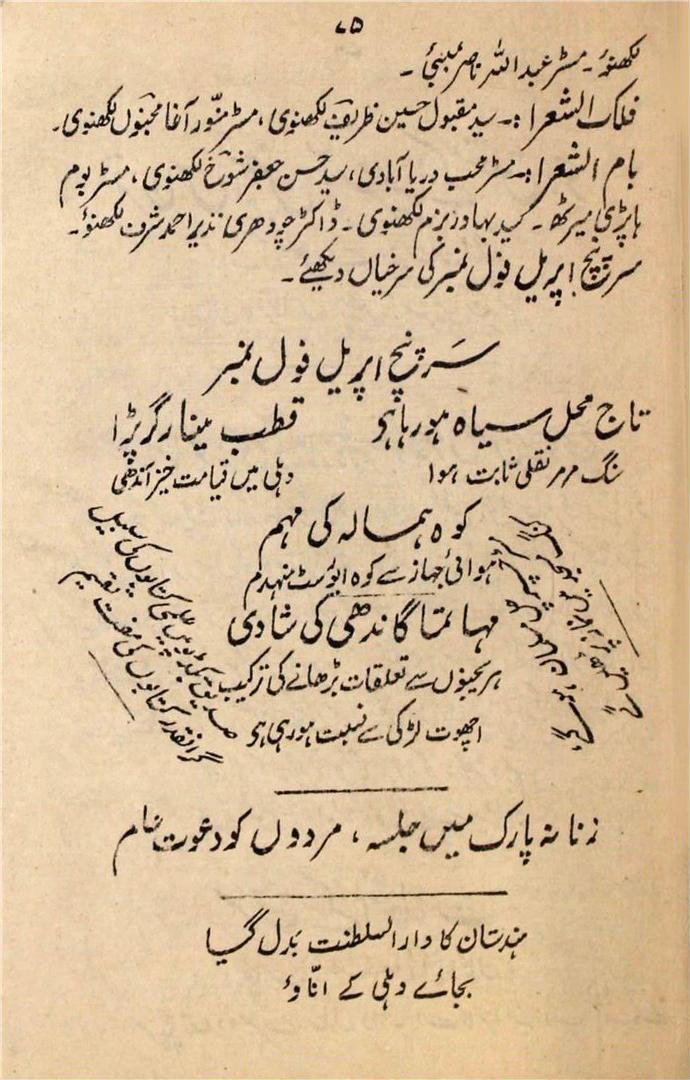 ۷۵
لکھنؤ۔ مسٹر عبد اللہ ناصر بمبئی۔
فلک الشعرا :۔ سید مقبول حسین ظریف لکھنوی، مسٹر منّور آغا مجنوں لکھنوی۔
بام الشعرا :۔ مسٹر محب دریا آبادی، سید حسن جعفر شوخ لکھنوی، مسٹر بوم
ہاپڑی میرٹھ۔ گیند بہادر بزم لکھنوی۔ ڈاکٹر چودھری نذیر احمد شرف لکھنؤ۔
سر پنچ اپریل فول نمبر کی سرخیاں دیکھئے۔
سر پنچ اپریل فول نمبر
تاج محل سیاہ ہو رہا ہو
سنگ مرمر نقلی ثابت ہوا
قطب مینار گر پڑا
دہلی میں قیامت خیز آندھی
کوہ ہمالہ کی مہم
ہوائی جہاز سے کوہ ایوسٹ منہدم
مہاتما گاندھی کی شادی
ہریجنوں سے تعلقات بڑھانے کی ترکیب
اچھوت لڑکی سے نسبت ہو رہی ہو
صدیق بکڈپو میں علمی کتابوں کی سبیل
گرانقدر کتابوں کی مفت تقسیم
زنانہ پارک میں جلسہ، مردوں کو دعوت عام
ہندستان کا دار السلطنت بدل گیا
بجائے دہلی کے انّاؤ